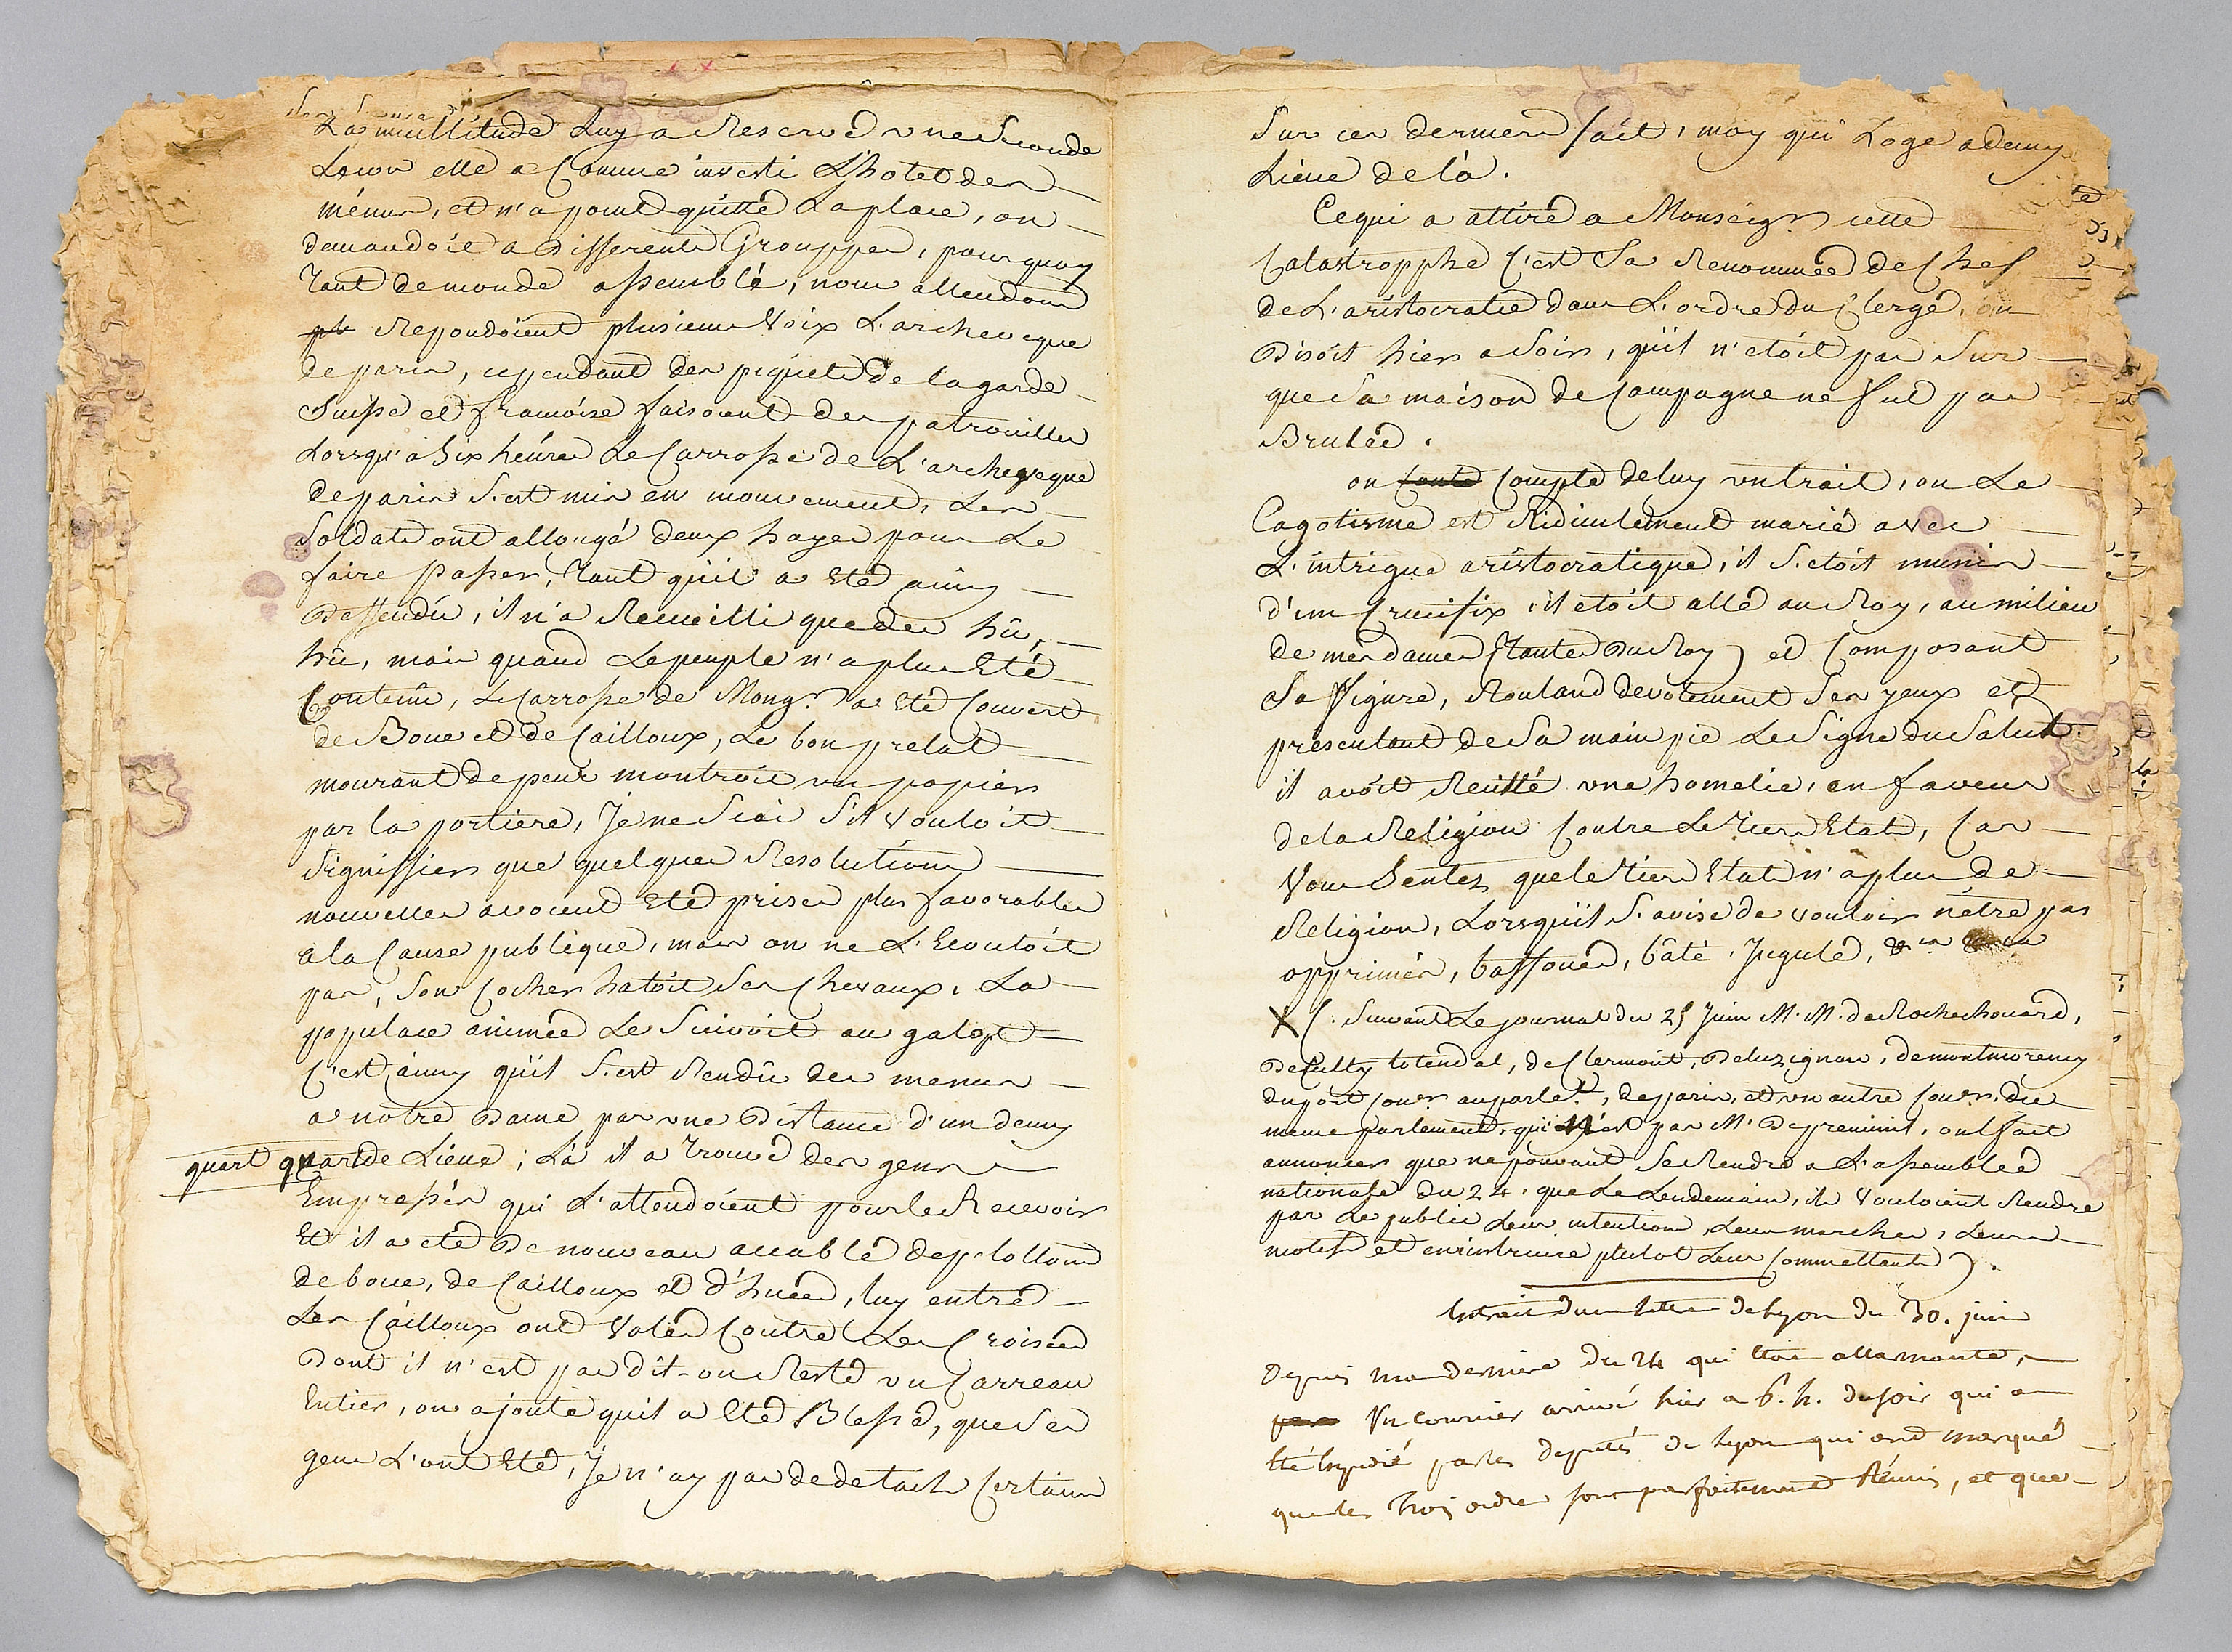 La multitude Luy a Reservé une Seconde
Leçon elle a Comme investi L'hotel des
ménus, et n'a point quitté La place, on
demandoit a differents Grouppes, pourquoy
Tant de monde assemblé, nous attendons
Repondoient plusieurs Voix L'archeveque
de paris, cependant des piquets de la garde
Suisse et francoise faisoient des patrouilles
Lorsqu'a Six heures Le Carrosse de L'archeveque
de paris s'est mis en mouvement, Les
Soldats ont allongé deux hayes pour Le
faire passer, Tant qu'il a Eté ainsy
Deffendu, il n'a Recueilli que des hû,
hû, mais quand Le peuple n'a plus Eté
Contenû, Le Carrosse de Mongr. a Eté Couvert
de Boue et de Cailloux, Le bon prelat
mourant de peur montroit un papier
par la portiere, Je ne Scai S'il Vouloit
Signiffier que quelques Resolutions
nouvelles avoient Eté prises plus favorables
a la Cause publique, mais on ne L'Ecoutoit
pas, Son Cocher hatoit Ses Chevaux, La
populace animée Le Suivoit au galopt
C'est ainsy qu'il S'est Rendû des menus
a notre Dame par une Distance d'un demy
quart quart de Lieue ; Là il a Trouvé des gens
Empressés qui L'attendoient pour le Recevoir
Et il a eté De nouveau accablé de pelottons
de boue, de Cailloux et d'huées, luy entré
Les Cailloux ont Volés Contre Les Croisées
Dont il n'est pas dit-on Resté un Carreau
Entier, on ajoute quil a Eté Blessé, que Ses
gens L'ont Eté, Je n'ay pas de details Certains
Sur ces derniers fait, moy qui Loge a demy
Lieue de là.
Ce qui a attiré a Monseigr. cette
Catastropphe C'est Sa Renommée de Chef
de L'aristocratie dans L'ordre du Clergé, on
Disoit hier a Soir, qu'il n'etoit pas Sur
que Sa maison de Campagne ne fut pas
Brulée.
on Conte Compte de luy un trait, ou Le
Cagotisme est Ridiculement marié avec
L'intrigue aristocratique, il S'etoit munir
d'un Crucifix, il etoit allé au Roy, au milieu
de mesdames (Tantes Du Roy) et Composant
Sa ffigure, Roulant devotement Ses yeux et
présentant de Sa main pie Le Signe du Salut.
il avoit Recitté une homelie, en faveur
de la Religion Contre Le Tiers Etat, Car
Vous Sentez que le tiers Etat n'a plus de
Religion, Lorsqu'il S'avise de vouloir nétre pas
opprimér, baffoué, bâté, Jugulé,
X (Suivant Le journal du 25 Juin M. M. de Rochechouard,
De Lully tolendal, de Clermont, De luzignan, de montmorency
duport Coner au parlet., de paris, et un autre Coner. du
meme parlement, qui N'est pas M. Depremenil, ont fait
annoncer que ne pouvant Se Rendre a L'assemblée
nationale du 24, que Le Lendemain, ils Vouloient Rendre
par Le public Leur intention, Leur marche, Leurs
motifs et en instruire plutot Leurs Commettants).
Extrait d'une lettre de Lyon du 30. juin
Depuis ma derniere du 24 qui étoit allarmante,
Un Courrier arrivé hier a 6. h. du soir qui a
été Envoié par les deputés de Lyon qui ont marqué
que les trois ordres sont parfaitement Réunis, et que